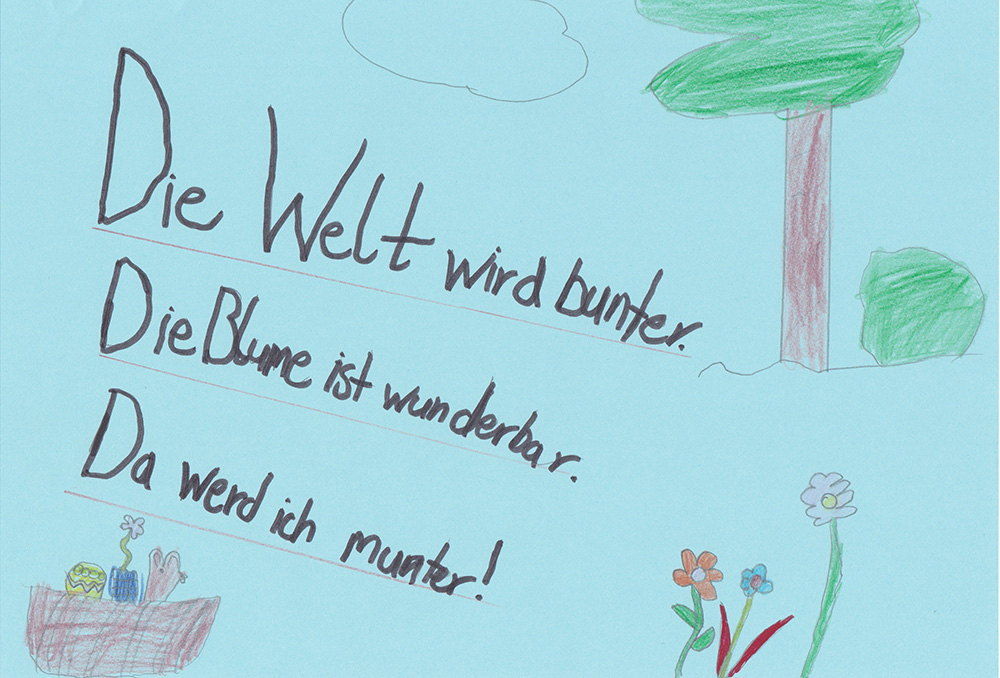 Die Welt wird bunter.
Die Blume ist wunderbar.
Da werd ich munter!